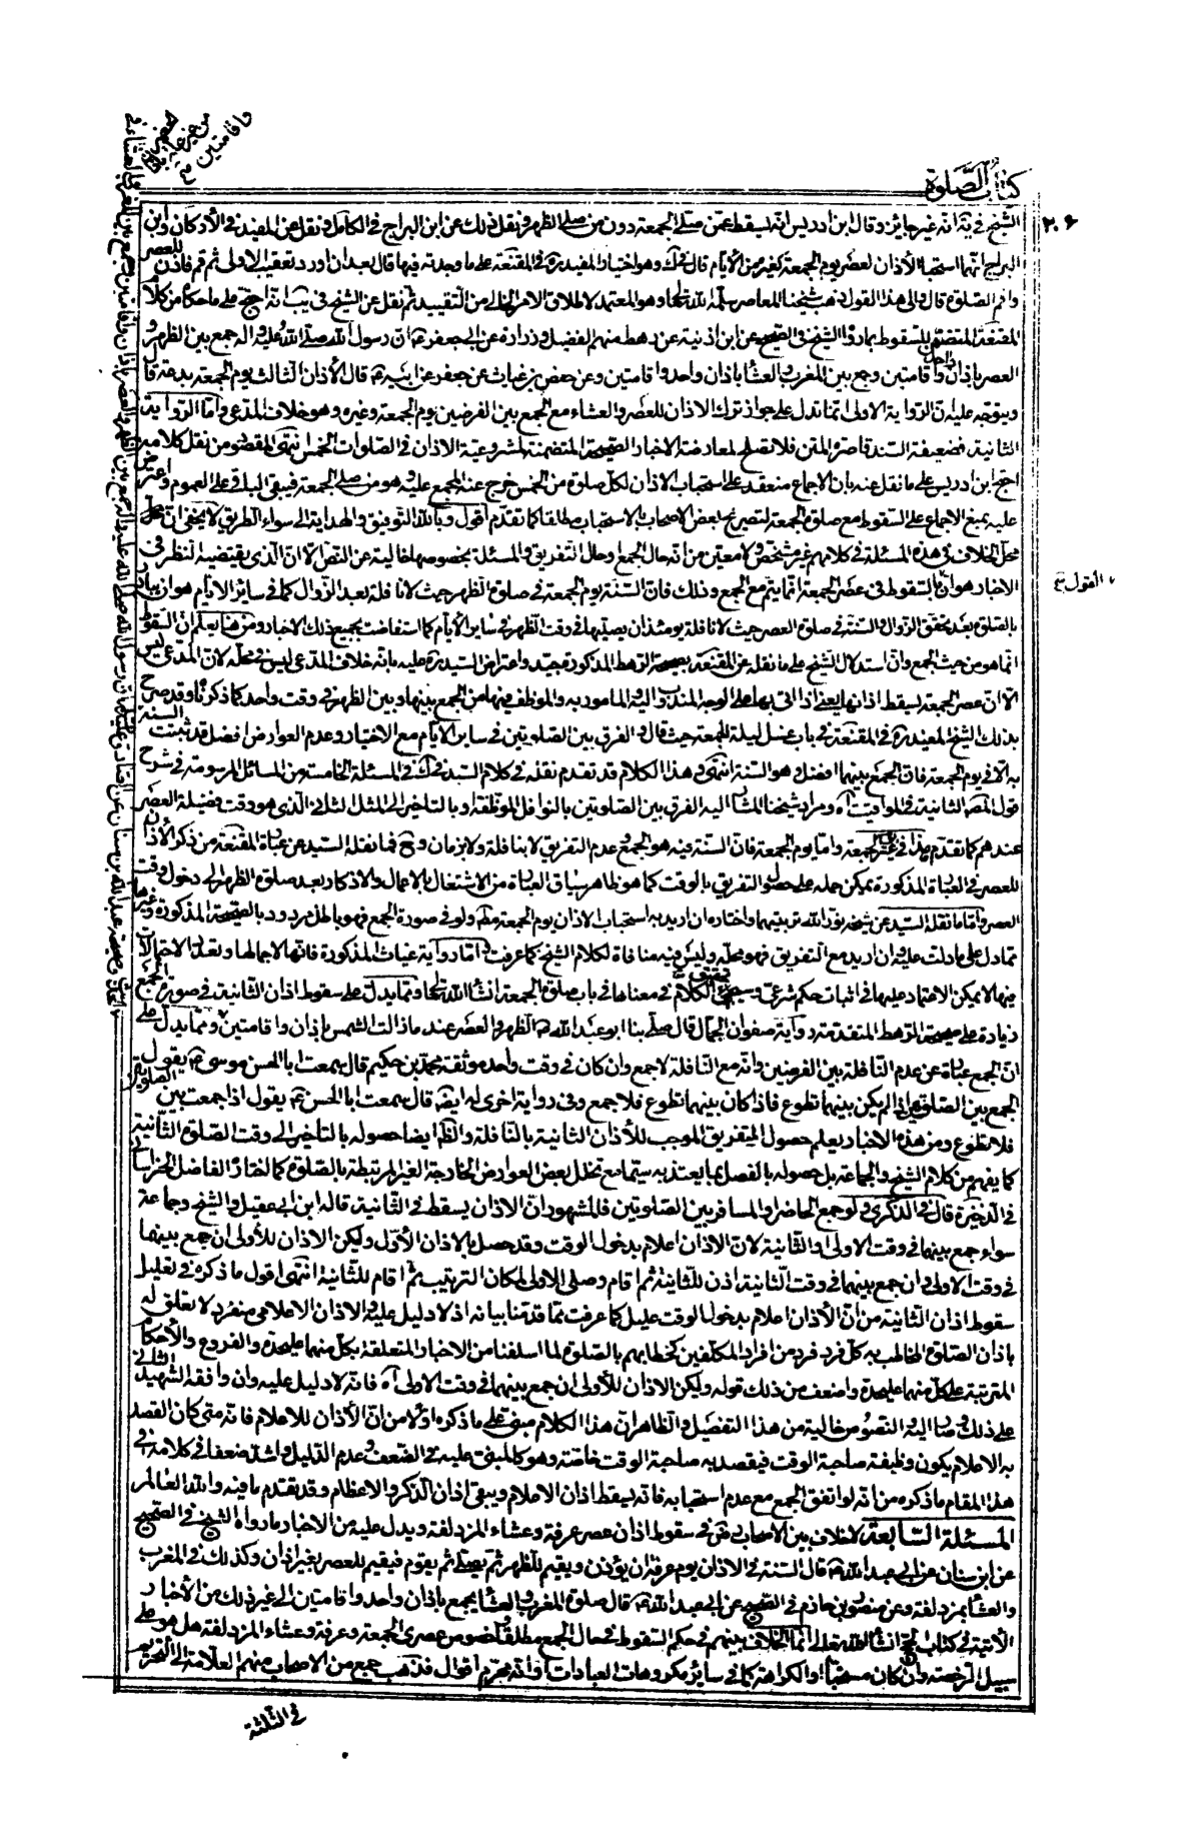 كتاب الصلوة
٢٠۶
الشيخ في ية انه غير جايز وقال ابن ادريس انه يسقط عمن صلى الجمعة دون من صلى الظهر ونقل ذلك عن ابن البراج في الكامل ونقل عن المفيد في الاركان وابن
البراج انهما استحبا الأذان لعصر يوم الجمعة كغيره من الأيام قال في ك وهو اختيار المفيد ره في المقنعة على ما وجدته فيها قال بعد ان اورد تعقيب الاولى ثم قم فاذن للعصر
واقم الصلوة قال والى هذا القول ذهب شيخنا المعاصر سلمه الله تعالى وهو المعتمد لاطلاق الامر الخالي من التقييد ثم نقل عن الشيخ في يب انه احتج على ما حكاه من كلام
المقنعة المتضمن للسقوط بما رواه الشيخ في الصحيح عن ابن اذنية عن رهط منهم الفضيل وزرارة عن ابي جعفر ع ان رسول الله صلى الله عليه واله جمع بين الظهر و
العصر باذان واحد واقامتين وجمع بين المغرب والعشاء باذان واحد واقامتين وعن حفص بن غياث عن جعفر عن ابيه ع قال الأذان الثالث يوم الجمعة بدعة قال
ويتوجه عليه ان الرواية الاولى انما تدل على جواز ترك الاذان للعصر والعشاء مع الجمع بين الفرضين يوم الجمعة وغيره وهو خلاف المدعى واما الرواية
الثانية فضعيفة السند قاصرة المتن فلا تصلح لمعارضة الاخبار الصحيحة المتضمنة لمشروعية الاذان في الصلوات الخمس انتهى المقصود من نقل كلامه
احتج ابن ادريس على ما نقل عنه بان الاجماع منعقد على استحباب الاذان لكل صلوة من الخمس خرج عنه المجمع عليه وهو من صلى الجمعة فيبقى الباقي على العموم واعترض
عليه بمنع الاجماع على السقوط مع صلوة الجمعة لتصريح بعض الاصحاب بالاستحباب مطلقا كما تقدم اقول وبالله التوفيق والهداية الى سواء الطريق لا يخفى ان
محل الخلاف في هذه المسئلة في كلامهم غير مشخص ولا معين من انه حال الجمع او حال التفريق والمسئلة بخصوصها خالية عن النص الا ان الذي يقتضيه النظر في
الاخبار هو ان السقوط في عصر الجمعة انما يتم مع الجمع وذلك فان السنة يوم الجمعة في صلوة الظهر حيث لا نافلة بعد الزوال كما في ساير الايام هو ان يبادر
بالصلوة بعد تحقق الزوال والسنة في صلوة العصر حيث لا نافلة يومئذ ان يصليها في وقت الظهر في ساير الأيام كما استفاضت بجميع ذلك الاخبار ومن هنا يعلم ان السقوط
انما هو من حيث الجمع وان استدلال الشيخ على ما نقله عن المقنعة بصحيحة الرهط المذكورة جيد واعتراض السيد ره عليه بانه خلاف المدعى ليس في محله لان المدعى ليس
الا ان عصر الجمعة يسقط اذانها يعني اذا اتى بها على الوجه المندوب اليه والمامور به والموظف فيها من الجمع بينها وبين الظهر في وقت واحد كما ذكرناه وقد صرح
بذلك الشيخ المفيد ره في المقنعة في باب غسل ليلة الجمعة حيث قال والفرق بين الصلوتين في ساير الايام مع الاختيار وعدم العوارض افضل قد ثبتت السنة
به الا في يوم الجمعة فان الجمع بينهما افضل وهو السنة انتهى وهذا الكلام قد تقدم نقله في كلام السيد في ك في المسئلة الخامسة من المسائل المرسومة في شرح
قول المصنف الثانية في المواقيت اه ومراد شيخنا المشار اليه الفرق بين الصلوتين بالنوافل الموظفة او بالتاخير الى المثل الثاني الذي هو وقت فضيلة العصر
عندهم كما تقدم هذا في غير الجمعة واما يوم الجمعة فان السنة فيه هو الجمع وعدم التفريق لا بنافلة ولا بزمان وح فما نقله السيد عن عبارة المقنعة من ذكر الأذان
للعصر في العبارة المذكورة يمكن حمله على حصول التفريق بالوقت كما هو ظاهر سياق العبارة من الاشتغال بالاعمال والاذكار بعد صلوة الظهر الى دخول وقت
العصر واما ما نقله السيد عن شيخه نور الله تربتهما واختاره ان اريد به استحباب الاذان يوم الجمعة مطلقا ولو في صورة الجمع فهو باطل مردود بالصحيحة المذكورة وغيرها
مما دل على ما دلت عليه وان اريد مع التفريق فهو محله وليس فيه منافاة لكلام الشيخ كما عرفت واما رواية غياث المذكورة فانها لاجمالها وتعدد الاحتمالات
فيها لا يمكن الاعتماد عليها في اثبات حكم شرعي وسيجئ تحقيق الكلام في معناها في باب صلوة الجمعة انشاء الله تعالى ومما يدل على سقوط اذان الثانية في صورة الجمع
زيادة على صحيحة الرهط المتقدمة رواية صفوان الجمال قال صلى بنا ابو عبد الله ع الظهر والعصر عند ما زالت الشمس باذان واقامتين ومما يدل على
ان الجمع عبارة عن عدم النافلة بين الفرضين وانه مع النافلة لا جمع وان كان في وقت واحد موثقة محمد بن حكيم قال سمعت ابا الحسن موسى ع يقول
الجمع بين الصلوتين اذا لم يكن بينهما تطوع فاذا كان بينهما تطوع فلا جمع وفي رواية اخرى له ايضا قال سمعت ابا الحسن ع يقول اذا جمعت بين الصلوتين
فلا تطوع ومن هذه الاخبار يعلم حصول التفريق الموجب للأذان الثانية بالنافلة والظاهر ايضا حصوله بالتأخير الى وقت الصلوة الثانية
كما يفهم من كلام الشيخ والجماعة بل حصوله بالفصل بما يعتد به سيما مع تخلل بعض العوارض الخارجة الغير المرتبطة بالصلوة كما اختاره الفاضل الخراساني
في الذخيرة قال في الذكرى ولو جمع الحاضر او المسافر بين الصلوتين فالمشهور ان الاذان يسقط في الثانية قاله ابن ابي عقيل والشيخ وجماعة
سواء جمع بينهما في وقت الاولى او الثانية لان الاذان اعلام بدخول الوقت وقد حصل بالاذان الأول وليكن الاذان للأولى ان جمع بينهما
في وقت الاولى وان جمع بينهما في وقت الثانية اذن للثانية ثم اقام وصلى الاولى لمكان الترتيب ثم اقام للثانية انتهى اقول ما ذكره في تعليل
سقوط اذان الثانية من ان الأذان اعلام بدخول الوقت عليل كما عرفت مما قدمنا بيانه اذ لا دليل عليه والاذان الاعلامي منفرد لا تعلق له
باذان الصلوة المخاطب به كل فرد فرد من افراد المكلفين كخطابهم بالصلوة لما اسلفنا من الاخبار المتعلقة بكل منهما عليحدة والفروع والأحكام
المترتبة على كل منهما عليحدة واضعف من ذلك قوله وليكن الاذان للأولى ان جمع بينهما في وقت الاولى اه فانه لا دليل عليه وان وافقه الشهيد الثاني
على ذلك والنصوص خالية من هذا التفصيل والظاهر ان هذا الكلام مبني على ما ذكره اولا من ان الأذان للاعلام فانه متى كان القصد
به الاعلام يكون وظيفته صاحبة الوقت فيقصد به صاحبة الوقت خاصة وهو كالمبني عليه في الضعف وعدم الدليل واشد ضعفا في كلامه في
هذا المقام ما ذكره من انه لو اتفق الجمع مع عدم استحبابه فانه يسقط اذان الاعلام ويبقى اذان الذكر والاعظام وقد تقدم ما فيه والله العالم
المسئلة السابعة لا خلاف بين الاصحاب رض في سقوط اذان عصر عرفة وعشاء المزدلفة ويدل عليه من الاخبار ما رواه الشيخ في الصحيح
عن ابن سنان عن ابي عبد الله ع قال السنة في الاذان يوم عرفة ان يؤذن ويقيم للظهر ثم يصلي ثم يقوم فيقيم للعصر بغير اذان وكذلك في المغرب
والعشاء بمزدلفة وعن منصور بن حازم في الصحيح عن ابي عبد الله ع قال صلوة المغرب والعشاء بجمع باذان واحد واقامتين الى غير ذلك من الأخبار
الأتية في كتاب الحج انشاء الله تعالى انما الخلاف بينهم في حكم السقوط في حال الجمع مطلقا او خصوص عصري الجمعة وعرفة وعشاء المزدلفة هل هو على
سبيل الرخصة وان كان مستحبا او الكراهة كما في ساير مكروهات العبادات او انه محرم اقوال فذهب جمع من الاصحاب منهم العلامة الى التحريم
في الثلثة